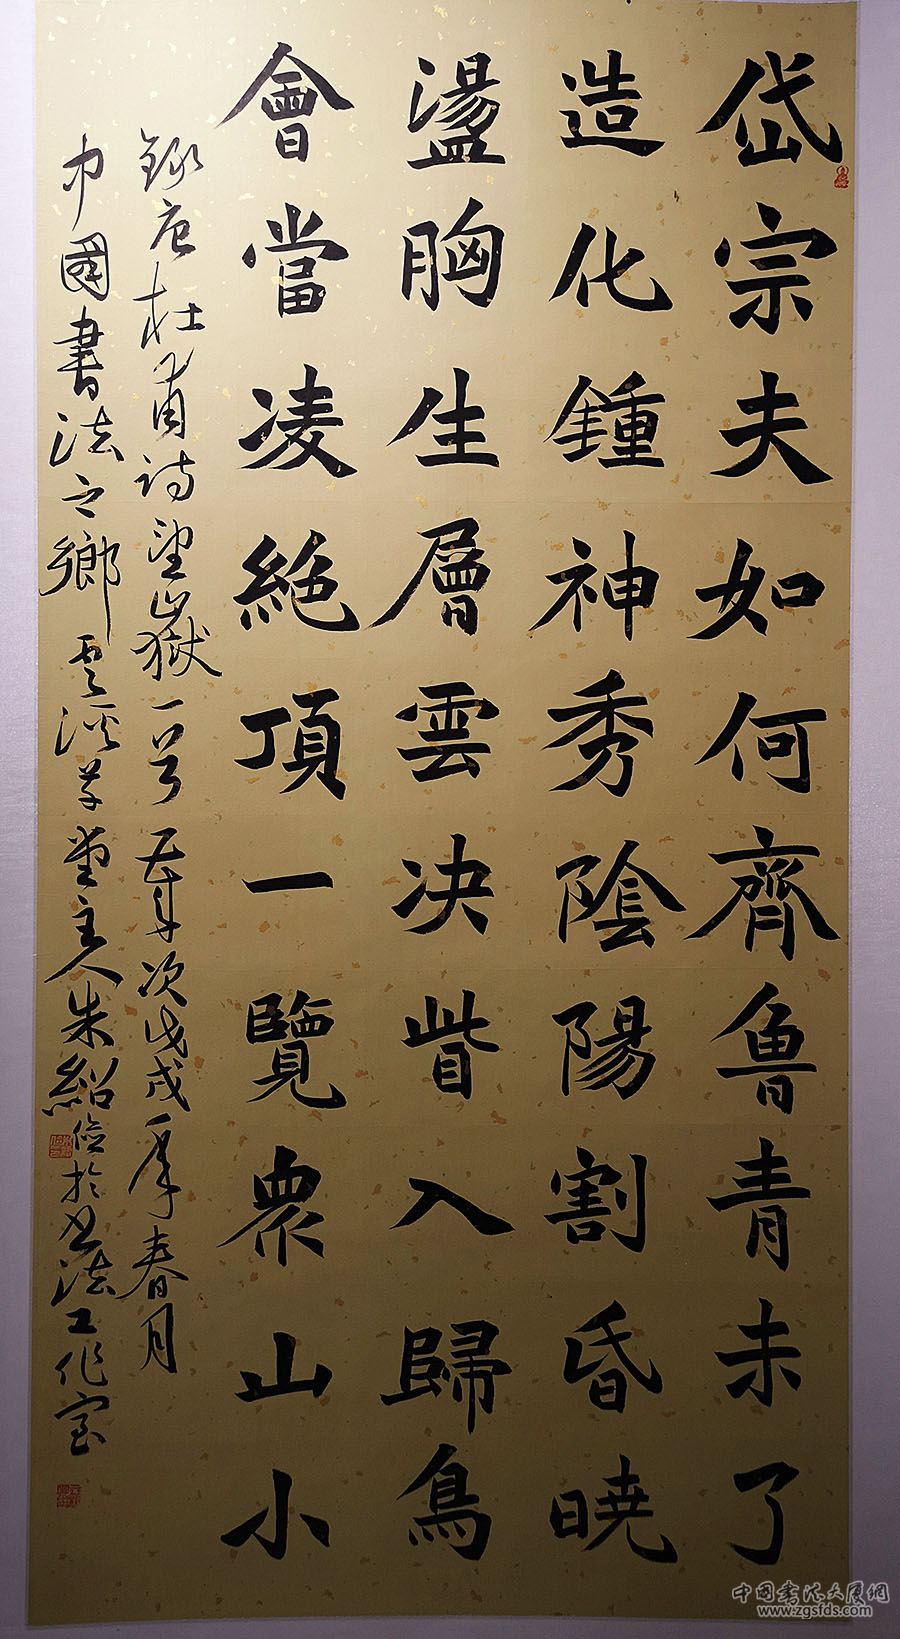 岱宗夫如何齊魯青未了
造化鍾神秀陰陽割昏曉
盪胸生層雲决眥入歸鳥
會當凌絶頂一覽衆山小
錄唐杜甫詩望嶽一首 歲次戊戌年春月
中國書法之鄉雲溪草堂主人朱紹儉於書法工作室
中国书法大厦网
www.zgsfds.com